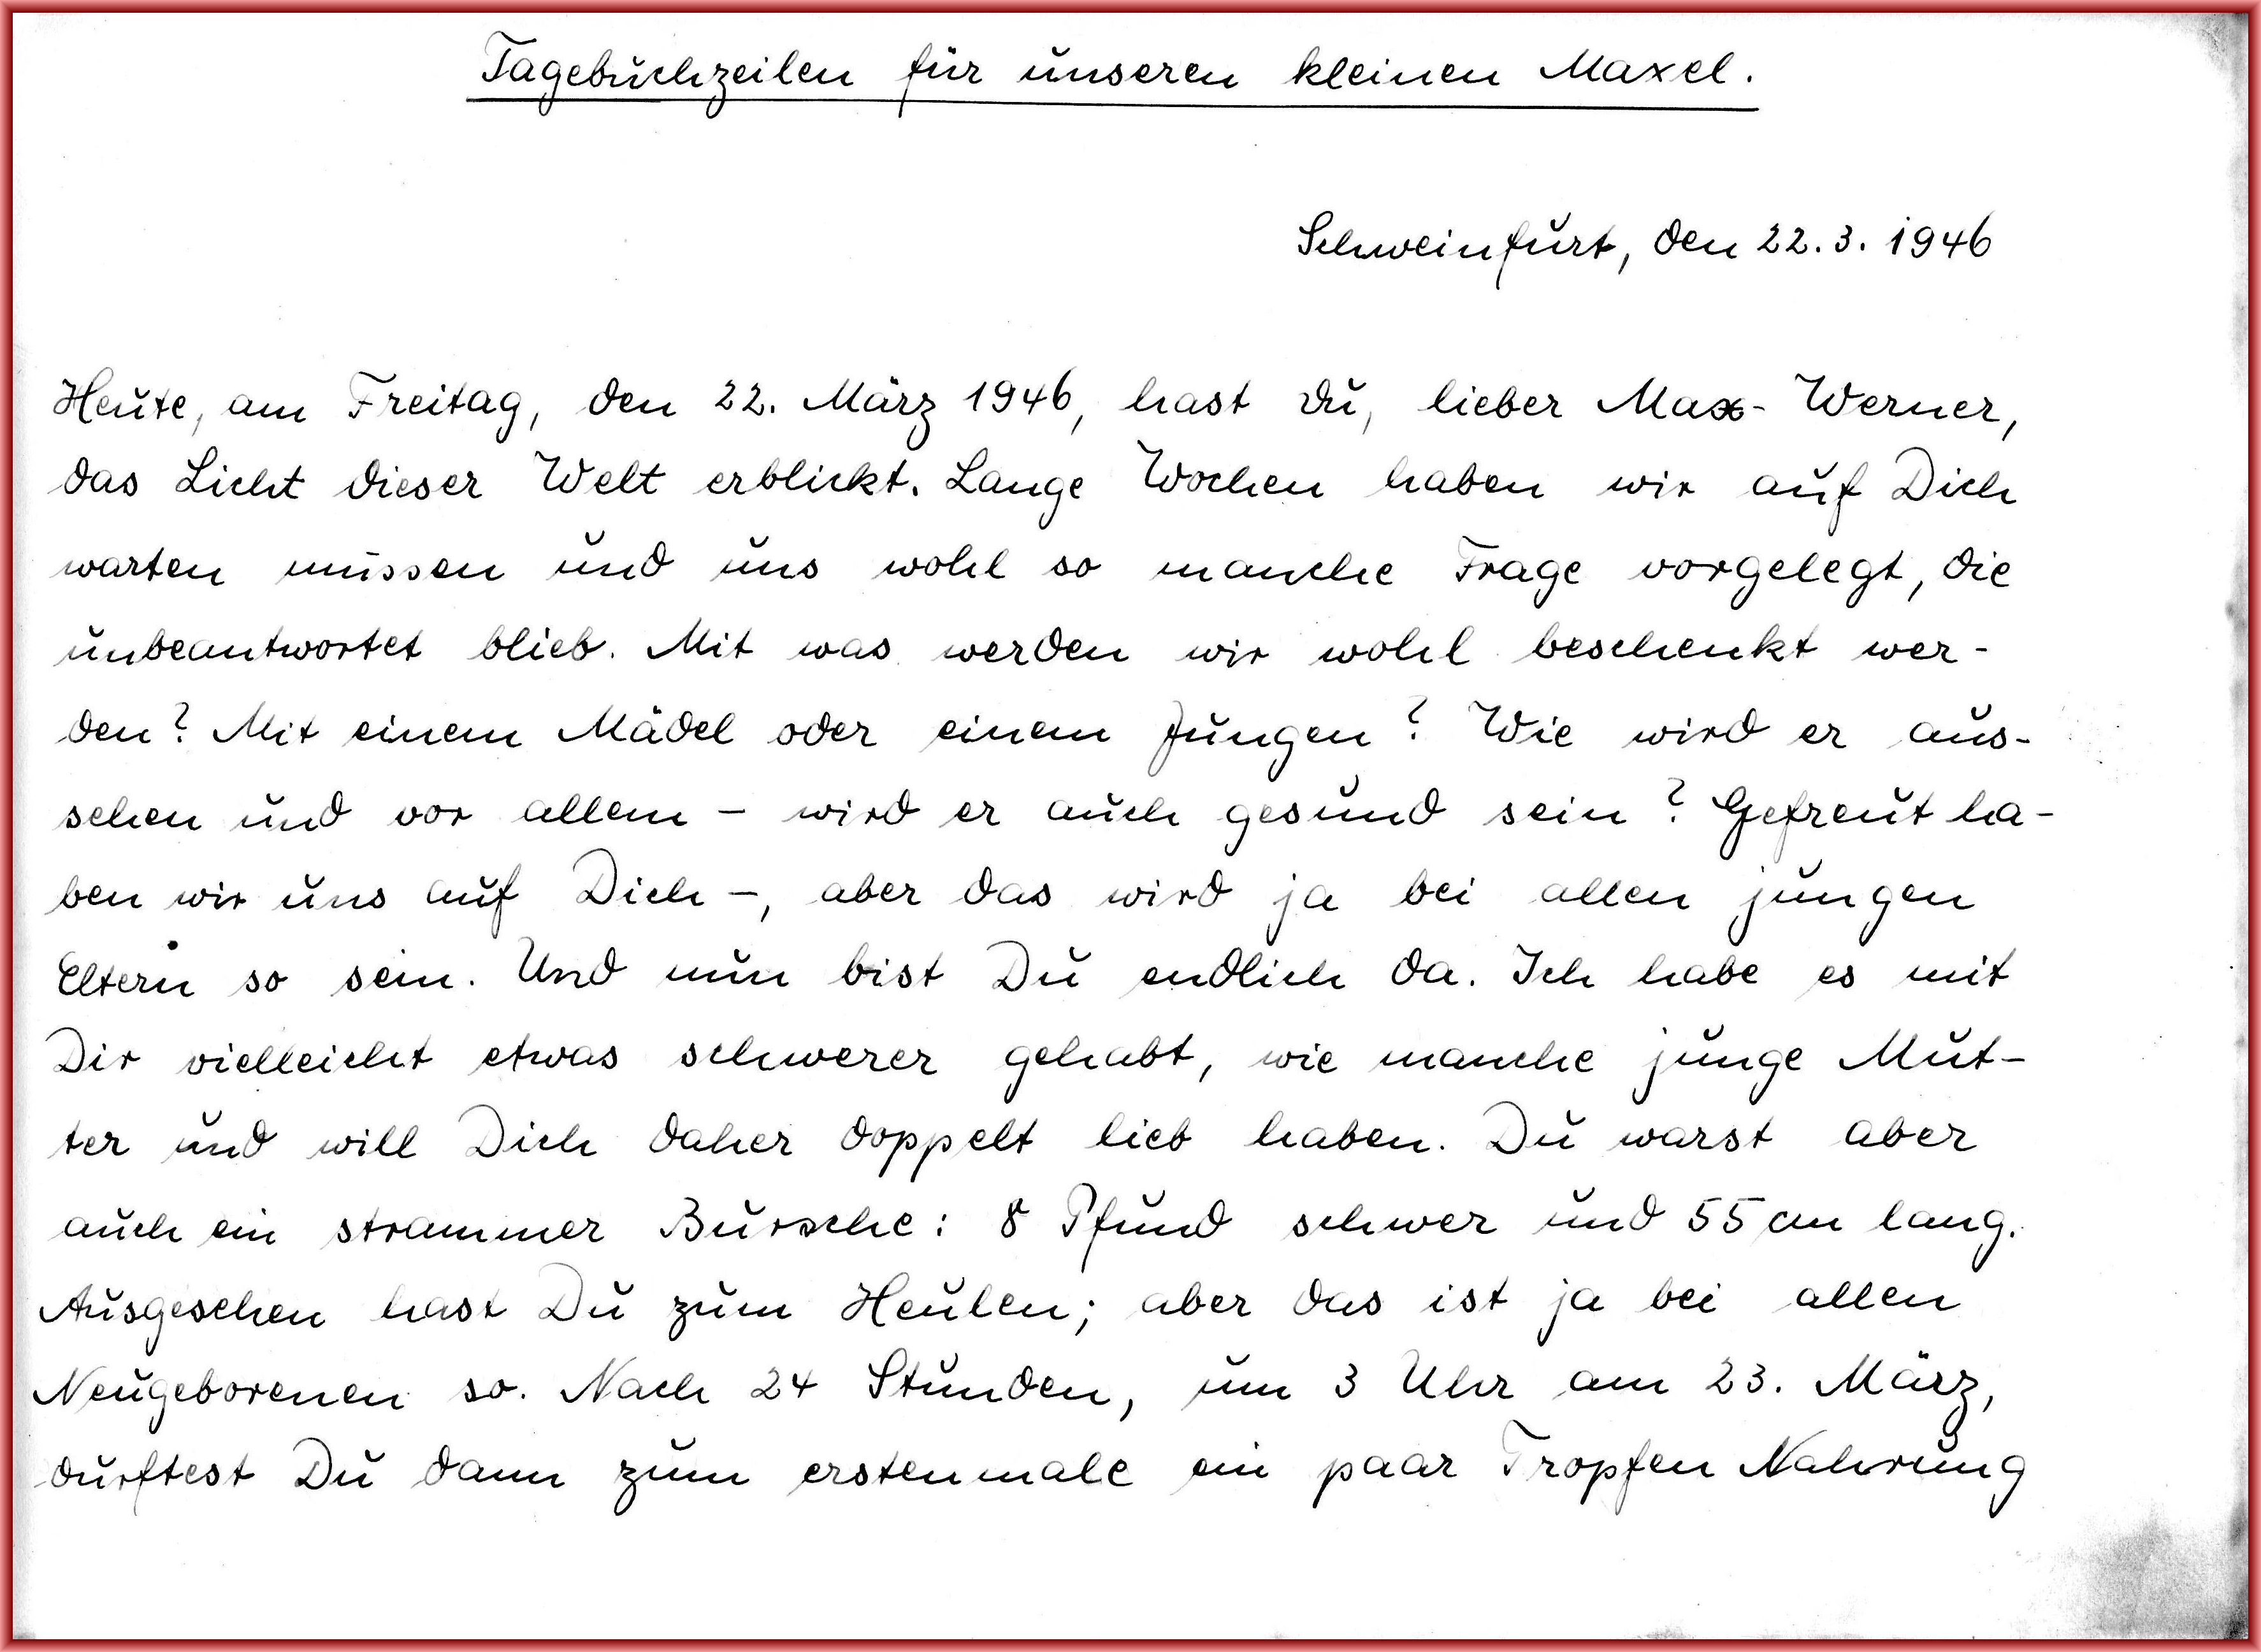 Tagebuchzeilen für unseren kleinen Maxel.
Schweinfurt, den 22. 3. 1946
Heute, am Freitag, den 22. März 1946, hast du, lieber Max-Werner,
das Licht dieser Welt erblickt. Lange Wochen haben wir auf Dich
warten müssen und uns wohl so manche Frage vorgelegt, die
unbeantwortet blieb. Mit was werden wir wohl beschenkt wer-
den? Mit einem Mädel oder einem Jungen? Wie wird er aus-
sehen und vor allem - wird er auch gesund sein? Gefreut ha-
ben wir uns auf Dich -, aber das wird ja bei allen jungen
Eltern so sein. Und nun bist Du endlich da. Ich habe es mit
Dir vielleicht etwas schwerer gehabt, wie manche junge Mut-
ter und will Dich daher doppelt lieb haben. Du warst aber
auch ein strammer Bursche: 8 Pfund schwer und 55 cm lang.
Ausgesehen hast Du zum Heulen; aber das ist ja bei allen
Neugeborenen so. Nach 24 Stunden, um 3 Uhr am 23. März,
durftest Du dann zum erstenmale ein paar Tropfen Nahrung